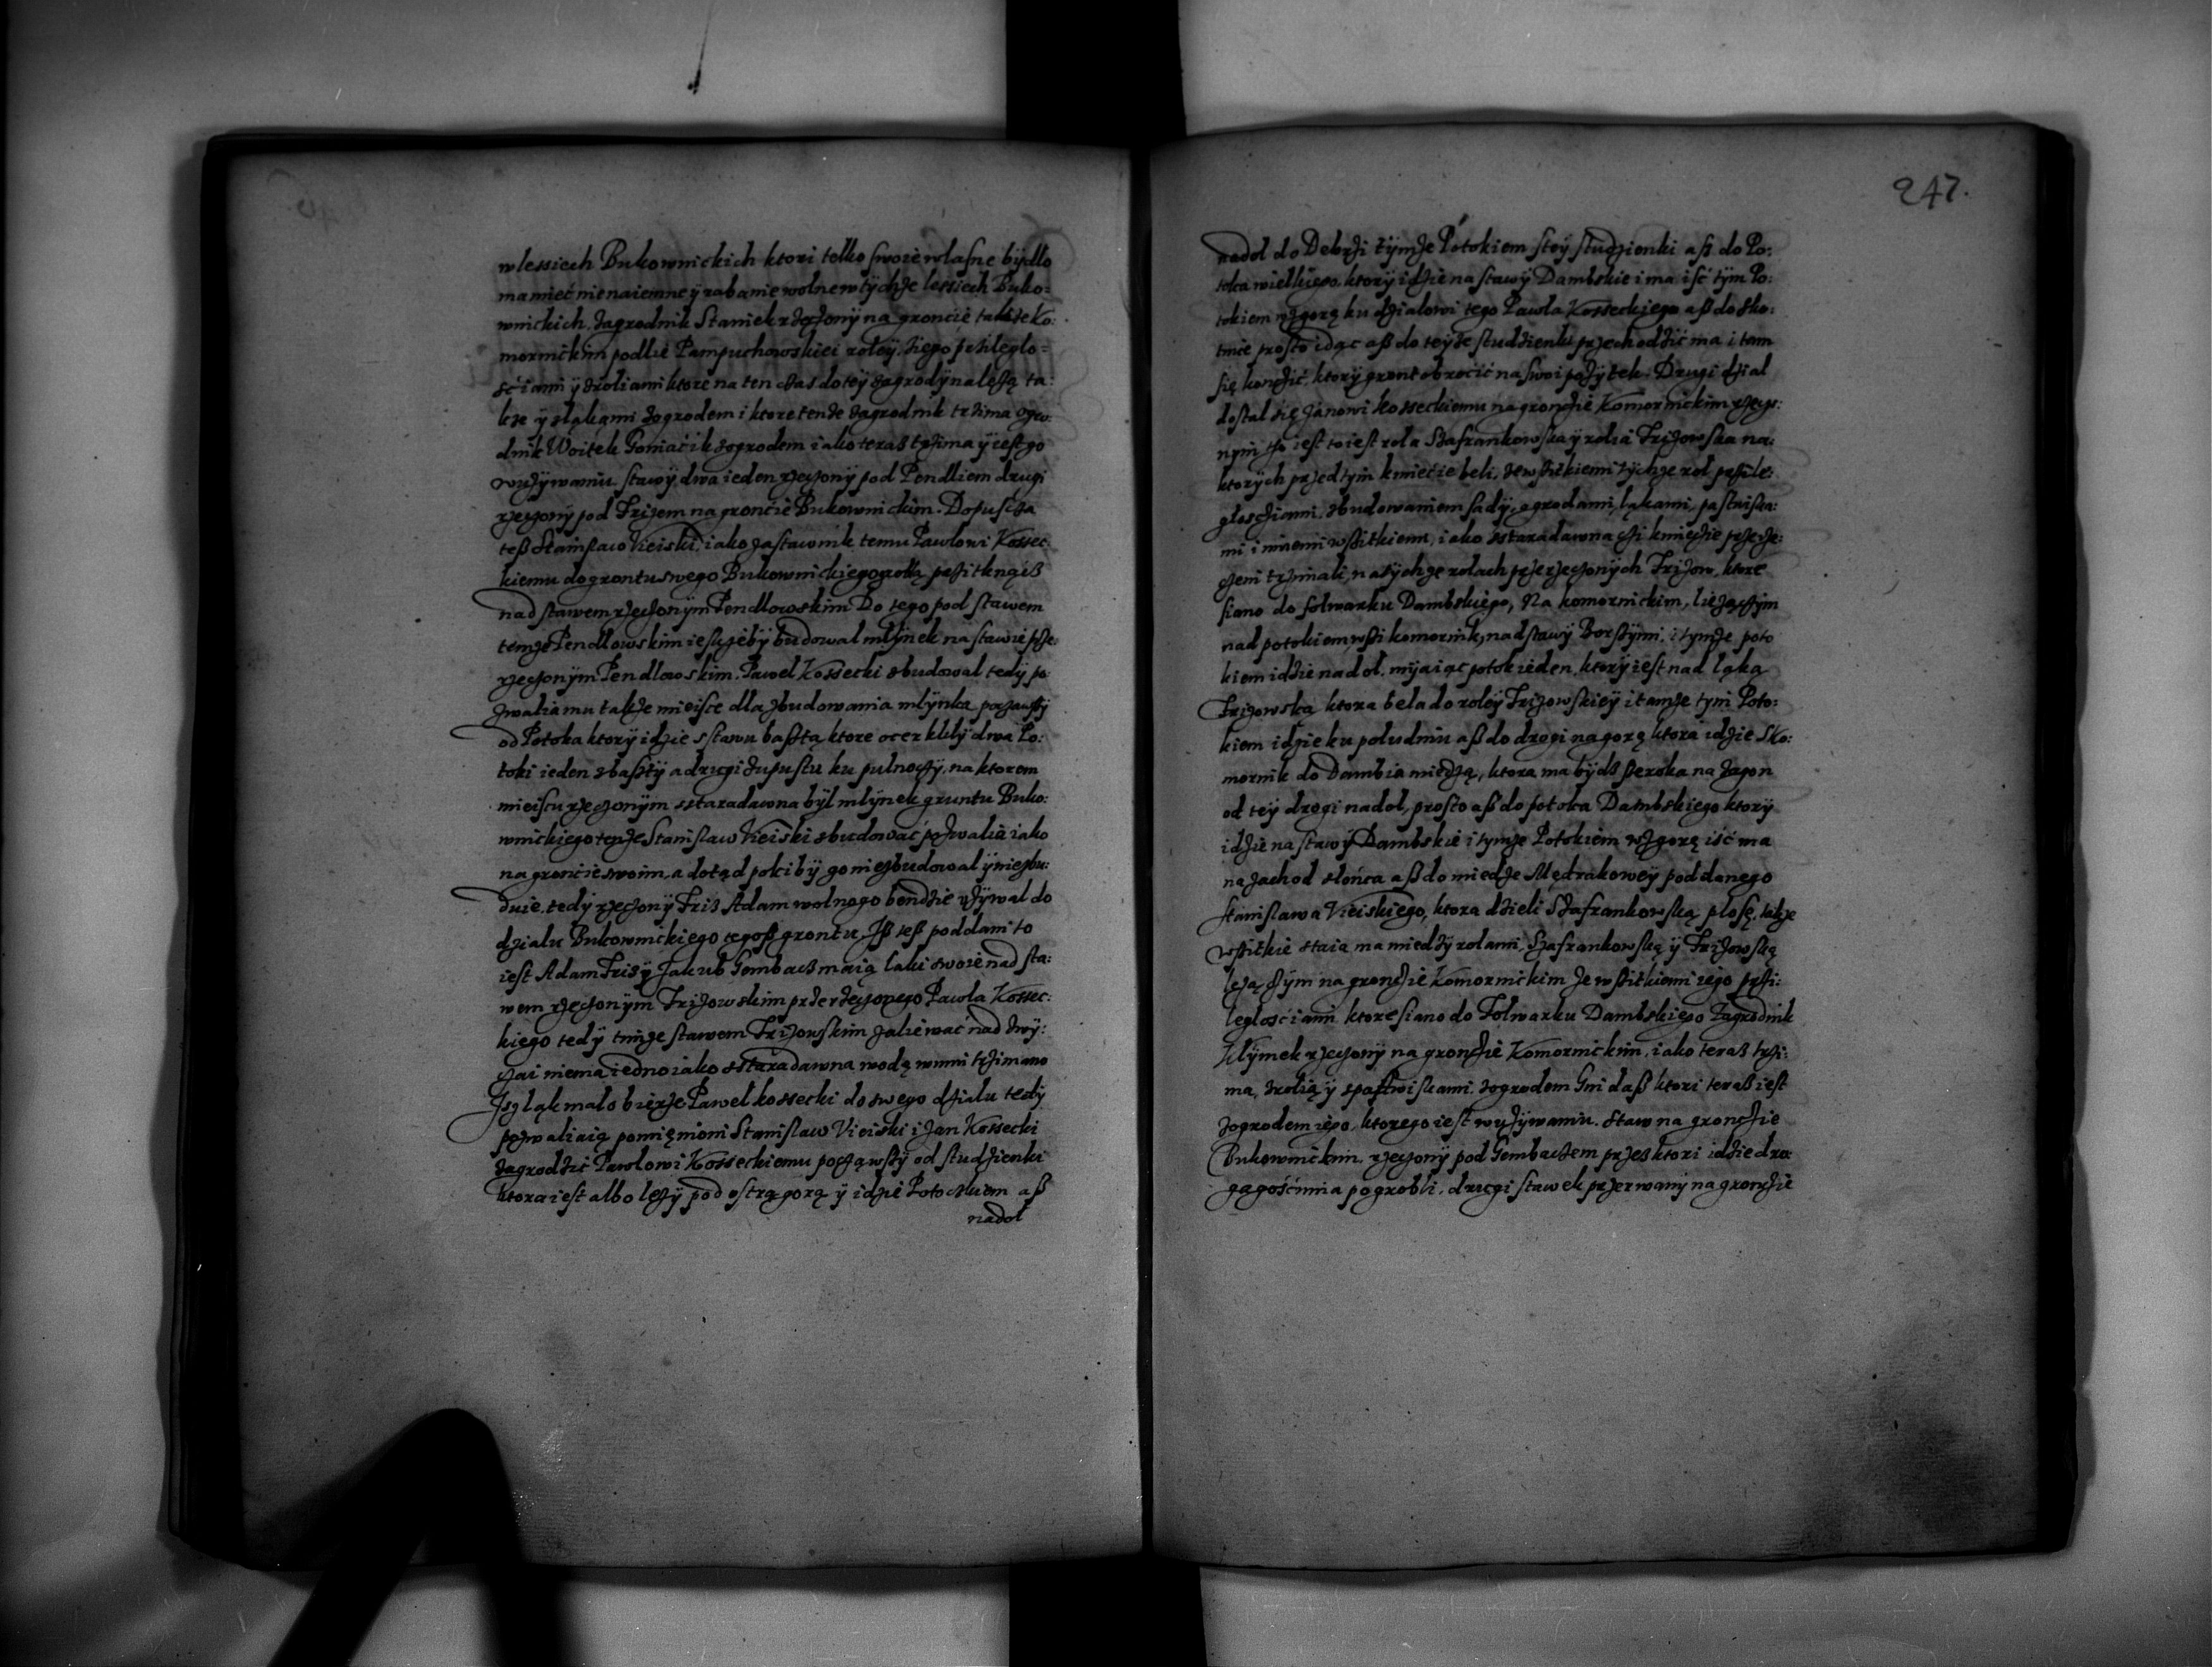 w lessiech Bukownickich ktori telko swoie wlasne bydlo
ma mieć nie naiemne ÿ rabanie wolne w tÿchże lessiech Buko:
wnickich. Zagrodnik Staniek rzeczonÿ na gronćie także Ko:
mornickim podlie Pampuchowskiei roleÿ. Ziego prziległo=
śćiami ÿ zroliami ktore na ten czas do teÿ zagrodÿ należą ta:
kże ÿ złąkąmi zogrodem i ktore tenże zagrodnik trzima ogro:
dnik Woitek Goniaćik zogrodem iako teraz trzima ÿ iest go
wużÿwaniu. stawÿ dwa ieden rzeczonÿ pod Pendliem drugi
rzeczonÿ pod Frizem na gronćie Bukownickim. Dopuscza
teß Stanislaw Vieiski iako zastawnik temu Pawlowi Kossec:
kiemu do grontu swego Bukownickiego
nad stawem rzeczonÿm Pendlowskim Do tego pod stawem
temże Pendlowskim iesliżebÿ budowal mlÿnek na stawie prze:
rzeczonÿm Pendlowskim. Pawel Kossecki zbudowal tedÿ po:
zwalia mu także mieisce dla zbudowania mlÿnka począwßÿ
od Potoka ktorÿ idzie sstawu basztą ktore ocerklilÿ dwa Po:
toki ieden zbasztÿ a drugi zupustu ku pulnoczÿ, na ktorem
mieiscu rzeczonÿm sstaradawna bÿl mlÿnek gruntu Buko:
wnickiego tenże Stanislaw Vieiski zbudować pozwalia iako
na gronćie swoim. a dotąd poki bÿ go nie zbudowal ÿ nie zbu:
duie. tedÿ rzeczonÿ Friz Adam wolnego bendzie użÿwal do
dzialu Bukownickiego tegoß grontu. Iß teß poddani to
iest Adam Friz ÿ Jakub Gembacz maią laki swoie nad sta:
wem rzeczonÿm Frizowskim przerzeczonego Pawla Kossec:
kiego tedÿ tmże stawem Frizowskim zaliewać nad zwÿ:
czai niema iedno iako sstaradawna wodą wnim trzimano
Isz ląk malo bierze Pawel kossecki do swego dzialu tedÿ
pozwaliaią pomięnioni Stanislaw Vieiski i Jan Kossecki
zagrodzić Pawlowi Kosseckiemu począwßÿ od studzienki
ktora iest albo leżÿ pod ostrą gorą ÿ idzie Potoczkiem aß
nadol
247.
nadol do Debrzi tÿmże Potokiem steÿ studzienki aß do Po:
toka wielkiego, ktorÿ idzie na stawÿ Dambskie i ma iść tÿm Po:
tokiem wzgorę ku dzialowi tego Pawla Kosseckiego aß do sko:
tnice prosto idąc aß do teÿże studzienki przechodzić ma i tam
się kończić, ktorÿ gront obroćić na swoi pożÿtek. Drugi dzial
dostal się Janowi kosseckiemu na gronćie Komornickim rzeczo:
nÿm to iest to iest rola Szafrankowska ÿ rolia Frizowska na:
ktorÿch przed tÿm kmiećie beli, zewßitkiemi tÿchże rol przile:
głosciami, zbudowaniem sadÿ, ogrodami, łąkami, pastwiska:
mi i innemi wßitkiemi, iako sstaradawna ći kmiećie przerze:
czeni trzimali, na tÿchże rolach przerzeczonÿch Frizow, ktore
siano do folwarku Dambskiego, Na komornickim, lieżączÿm
nad potokiem, wßi komornik, nad stawÿ Borstÿmi, i tÿmże poto
kiem idzie nadol, mÿaiąc potok ieden, ktorÿ iest nad łąką
Frizowską ktora bela do roleÿ Frizowskieÿ i tamże tym Poto:
kiem idzie ku poludniu aß do drogi na gorę ktora idzie s Ko:
mornik do Dambia miedzą, ktora ma bÿdź ßeroka na zagon
od teÿ drogi nadol, prosto aß do potoka Dambskiego ktorÿ
idzie na stawÿ Dambskie i tymże Potokiem wzgorę iść ma
na zachod słońca aß do miedze Mędrakoweÿ poddanego
Stanislawa Vieiskiego, ktora dzieli Szafrankowską płosę, także
wßitkie staia ma miedzÿ rolami, Szafrankowską ÿ Frizowską
leżączÿm na gronćie Komornickim ze wßitkiemi iego przi:
ległośćiami ktore siano do Folwarku Dambskiego Zagrodnik
Klÿmek rzeczonÿ na gronćie Komornickim, iako teraz trzi:
ma, zrolią ÿ spastwiskami. zogrodem Gnidaß ktori teraß iest
zogrodem iego, ktorego iest wużÿwaniu. Staw na gronćie
Bukownickim rzeczonÿ pod Gembaczem przes ktori idzie dro:
ga gośćinnia po grobli, drugi stawek przerwanÿ na gronćie